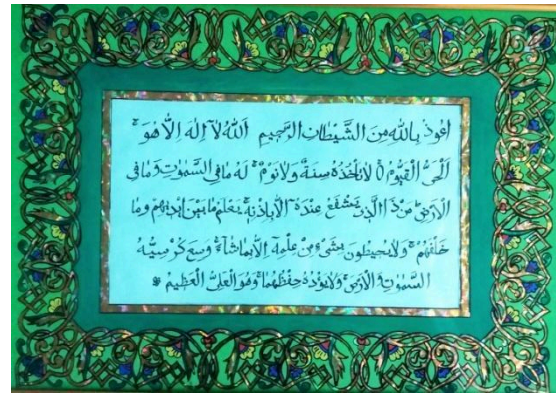 اعُوذُ بِاللّٰهِ مِنَ الشَّيْطٰانِ الرَّجِيمِ اَللّٰهُ لَآ اِلٰهَ اِلَّا هُوَۚ
اَلْحَيُّ الْقَيُّومُ لَا تَأْخُذُهُ سِنَةٌ وَلَا نَوْمٌۜ لَهُ مَا فِي السَّمٰوَاتِ وَمَا فِي
الْاَرْضِۜ مَنْ ذَا الَّذِي يَشْفَعُ عِنْدَهُٓ اِلَّا بِاِذْنِهِۜ يَعْلَمُ مَا بَيْنَ اَيْدِيهِمْ وَمَا
خَلْفَهُمْۚ وَلَا يُحِيطُونَ بِشَيْءٍ مِنْ عِلْمِهِٓ اِلَّا بِمَا شَآءَۚ وَسِعَ كُرْسِيُّهُ
السَّمٰوَاتِ وَالْاَرْضَۚ وَلَا يَؤُدُهُ حِفْظُهُمَاۚ وَهُوَ الْعَلِيُّ الْعَظِيمُ